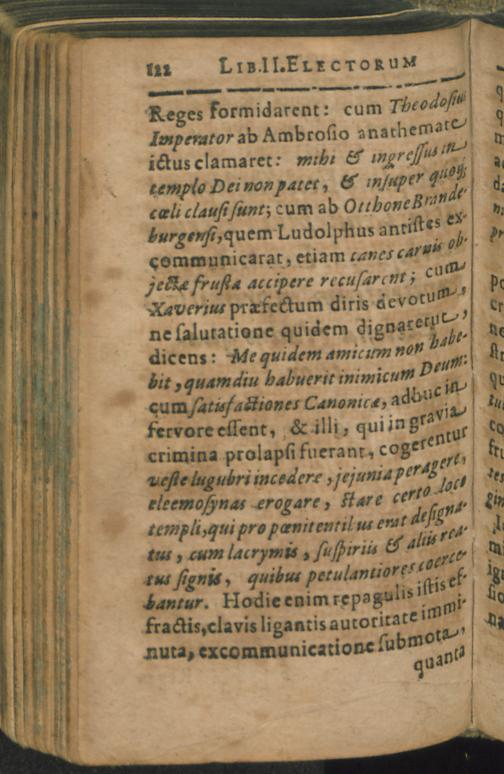 122 LIB.II.ELECTORUM
Reges formidarent: cum Theodosius
Imperator ab Ambrosio anathemate
ictus clamaret: mihi & ingressus in
templo Dei non patet, & insuper quoq;
cœli clausi sunt; cum ab Otthone Brande-
burgensi, quem Ludolphus antistes ex-
communicarat, etiam canes carnis ob-
jectæ frusta accipere recusarent; cum
Xaverius præfectum diris devotum,
ne salutatione quidem dignaretur,
dicens: Me quidem amicum non habe-
bit, quamdiu habuerit inimicum Deum:
cum satisfactiones Canonicæ, adhuc in
fervore essent, & illi, qui in gravia
crimina prolapsi fuerant, cogerentur
veste lugubri incedere, jejunia peragere,
eleemosynas erogare, stare certo loco
templi, qui pro pœnitentibus erat designa-
tus, cum lacrymis, suspiriis & aliis rea-
tus signis, quibus petulantiores coerce-
bantur. Hodie enim repagulis istis ef-
fractis, clavis ligantis autoritate immi-
nuta, excommunicatione submota,
quanta